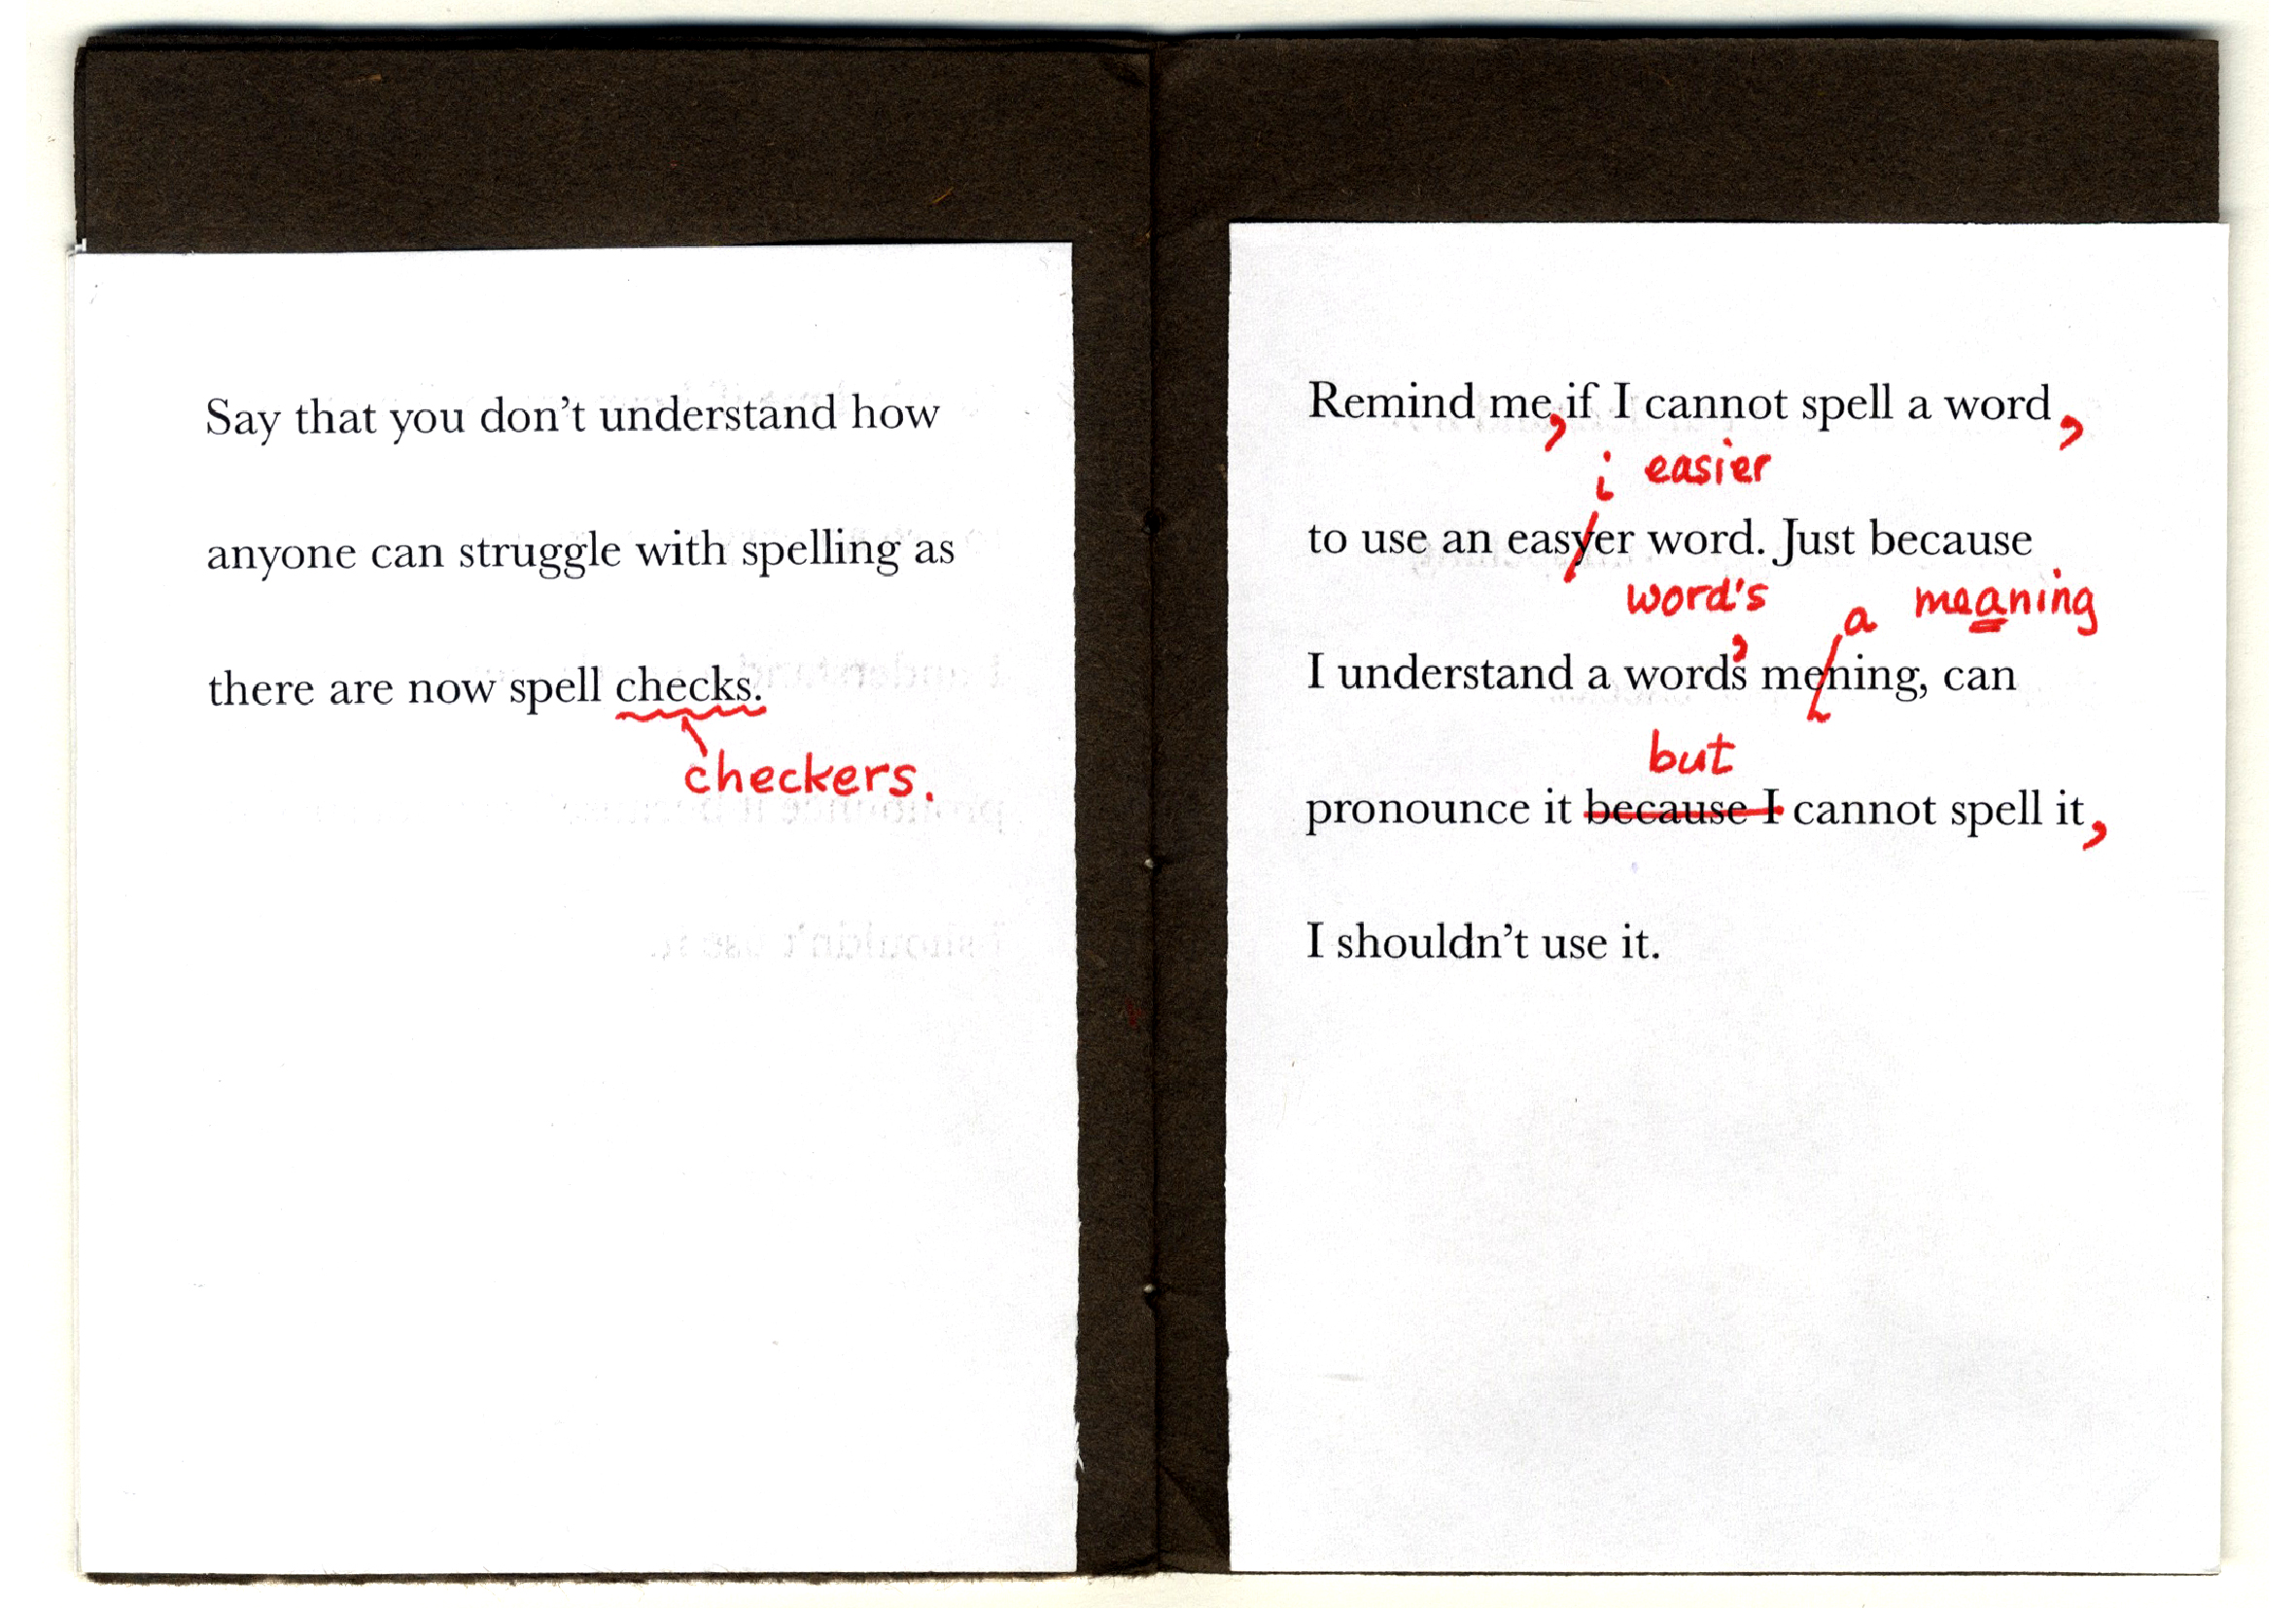 Say that you don't understand how
anyone can struggle with spelling as
there are now spell checks.
checkers.
Remind me, if I cannot spell a word,
i easier
to use an easyer word. Just because
word's a meaning
I understand a word's mening, can
but
pronounce it because I cannot spell it,
I shouldn't use it.